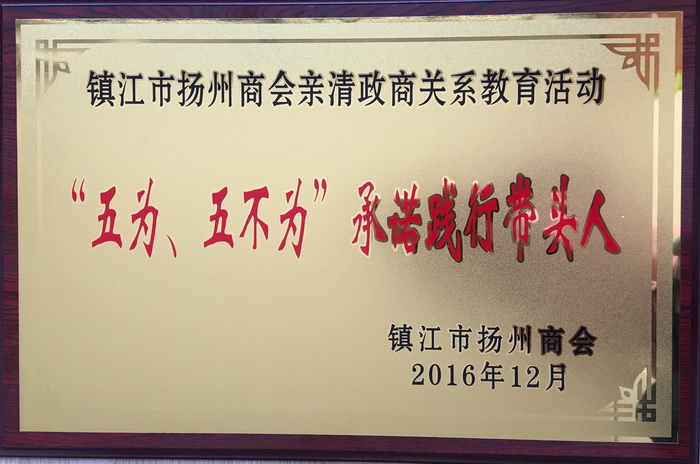 镇江市扬州商会亲清政商关系教育活动
“五为、五不为”承诺践行带头人
镇江市扬州商会
2016年12月